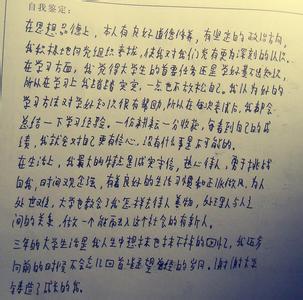 自我鉴定:
在思想品德上,本人有良好道德修养,有坚定的政治方向,
我积极地向党组织靠拢,使我对我们党有更为深刻的认识。
在学习方面,我觉得大学生的首要任务还是学好文化知识,
所以在学习上我踏踏实实,一点也不放松。我认为好的
学习方法对学好知识很有帮助,所以在每次考试后,我都会
总结一下学习经验。一份耕耘一分收获,每看到自己的成
绩,我就会对自己更有信心,没有什么事是不可能的。
在生活上,我最大的特点是诚实守信,热心待人,勇于挑战
自我,时间观念强,有着良好的生活习惯和正派作风。为人
处世
间的关系,做一个能融入这个社会的有新人。
三年的大学生活是我人生中想抹也抹不掉的回忆,我迈步
向前的时候不会忘记回首凝望曾经的岁月。谢谢大学